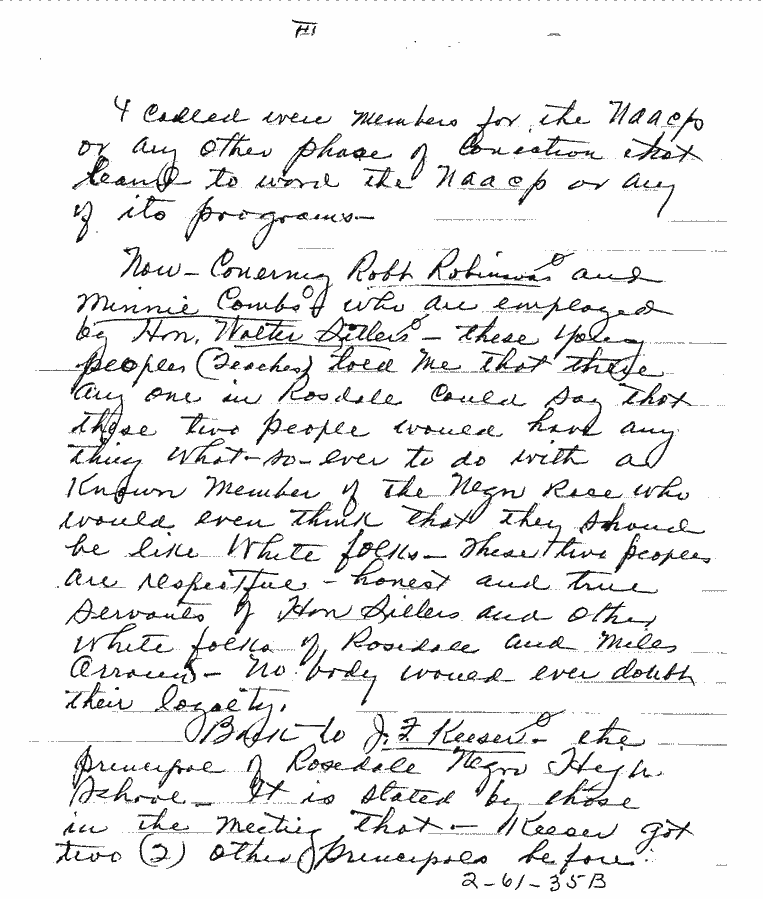 III
4 called were members for the Naacp
or any other phase of Conection that
leand to word the Naacp or any
of its programs—
Now — Conernig Robt Robinson and
Minnie Combs who are employed
by Hon. Walter Sillers — these young
peoples (Teaches) toed me that
any one in Rosdale Could say that
these two people would have any
thing what-so-ever to do with a
Known Member of the Negro Race who
would even think that they should
be like White folks — These two peoples
are respectfue — honest and true
servants of Hon Sillers and other
White folks of Rosedale and Miles
Arround — No body would ever doubt
their loyalty.
Back to J. F. Keeser — the
principoe of Rosedale Negro High
School — It is stated by those
in the meeting that — Keeser got
two (2) other Principals before
2-61-35B